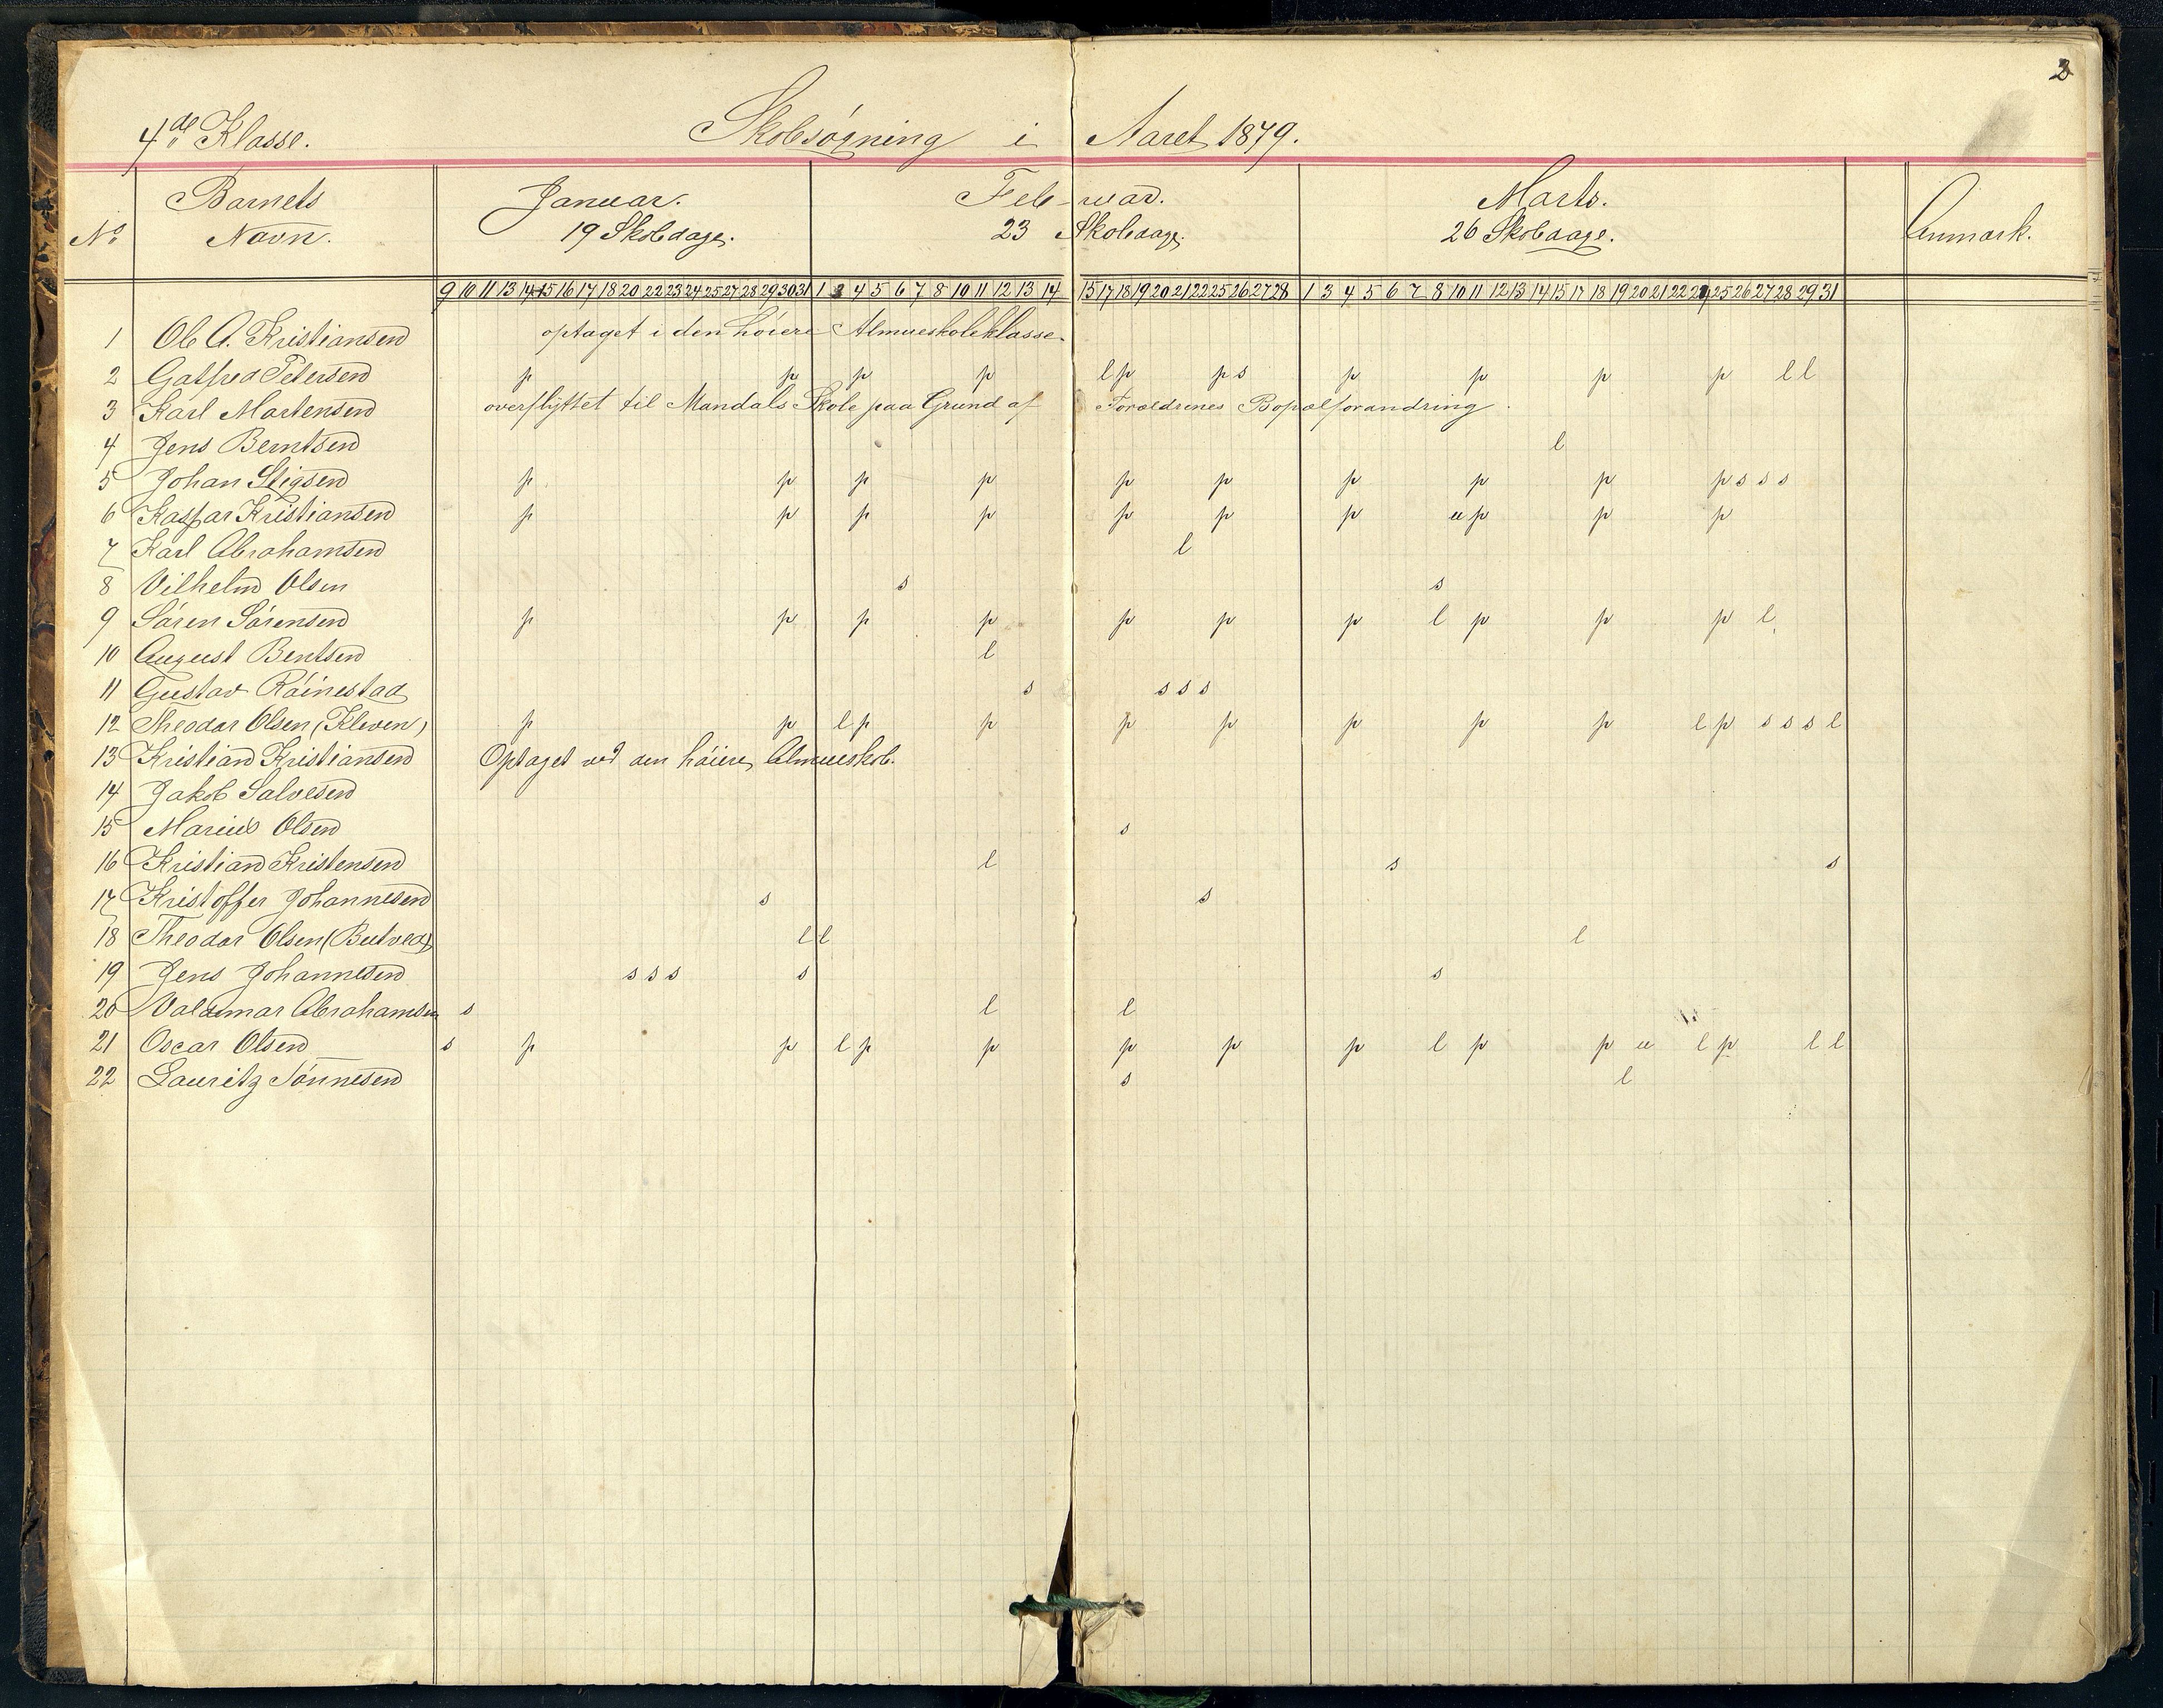 2
4de Klasse. Skolesøgning i Aaret 1879.
No Barnets Navn. Januar. 19 Skoledage. Februar. 23 Skoledage. Marts. 26 Skoledage. Anmærk.
9 10 11 13 14 15 16 17 18 20 22 23 24 25 27 28 29 30 31 1 3 4 5 6 7 8 10 11 12 13 14 15 17 18 19 20 21 22 25 26 27 28 1 3 4 5 6 7 8 10 11 12 13 14 15 17 18 19 20 21 22 24 25 26 27 28 29 31
1 Ole A. Kristiansen optaget i den høiere Almueskoleklasse.
2 Gotfred Petersen p p p p l p p s p p p p l l
3 Karl Martensen overflyttet til Mandals Skole paa Grund af Forældrenes Bopælforandring.
4 Jens Berntsen l
5 Johan Stigsen p p p p p p p p p p s s s
6 Kaspar Kristiansen p p p p p p p u p p p
7 Karl Abrahamsen l
8 Vilhelm Olsen s s
9 Søren Sørensen p p p p p p p l p p p l
10 August Bentsen l
11 Gustav Røinestad s s s s
12 Theodor Olsen (Kleven) p p l p p p p p p p l p s s s l
13 Kristian Kristiansen Optaget ved den høiere Almueskole.
14 Jakob Salvesen
15 Marius Olsen s
16 Kristian Kristensen l s s
17 Kristoffer Johannesen s s
18 Theodor Olsen l l l
19 Jens Johannesen s s s s s
20 Valdemar Abrahamsen s l l
21 Oscar Olsen s p p l p p p p p l p p u l p l l
22 Lauritz Tønnesen s l